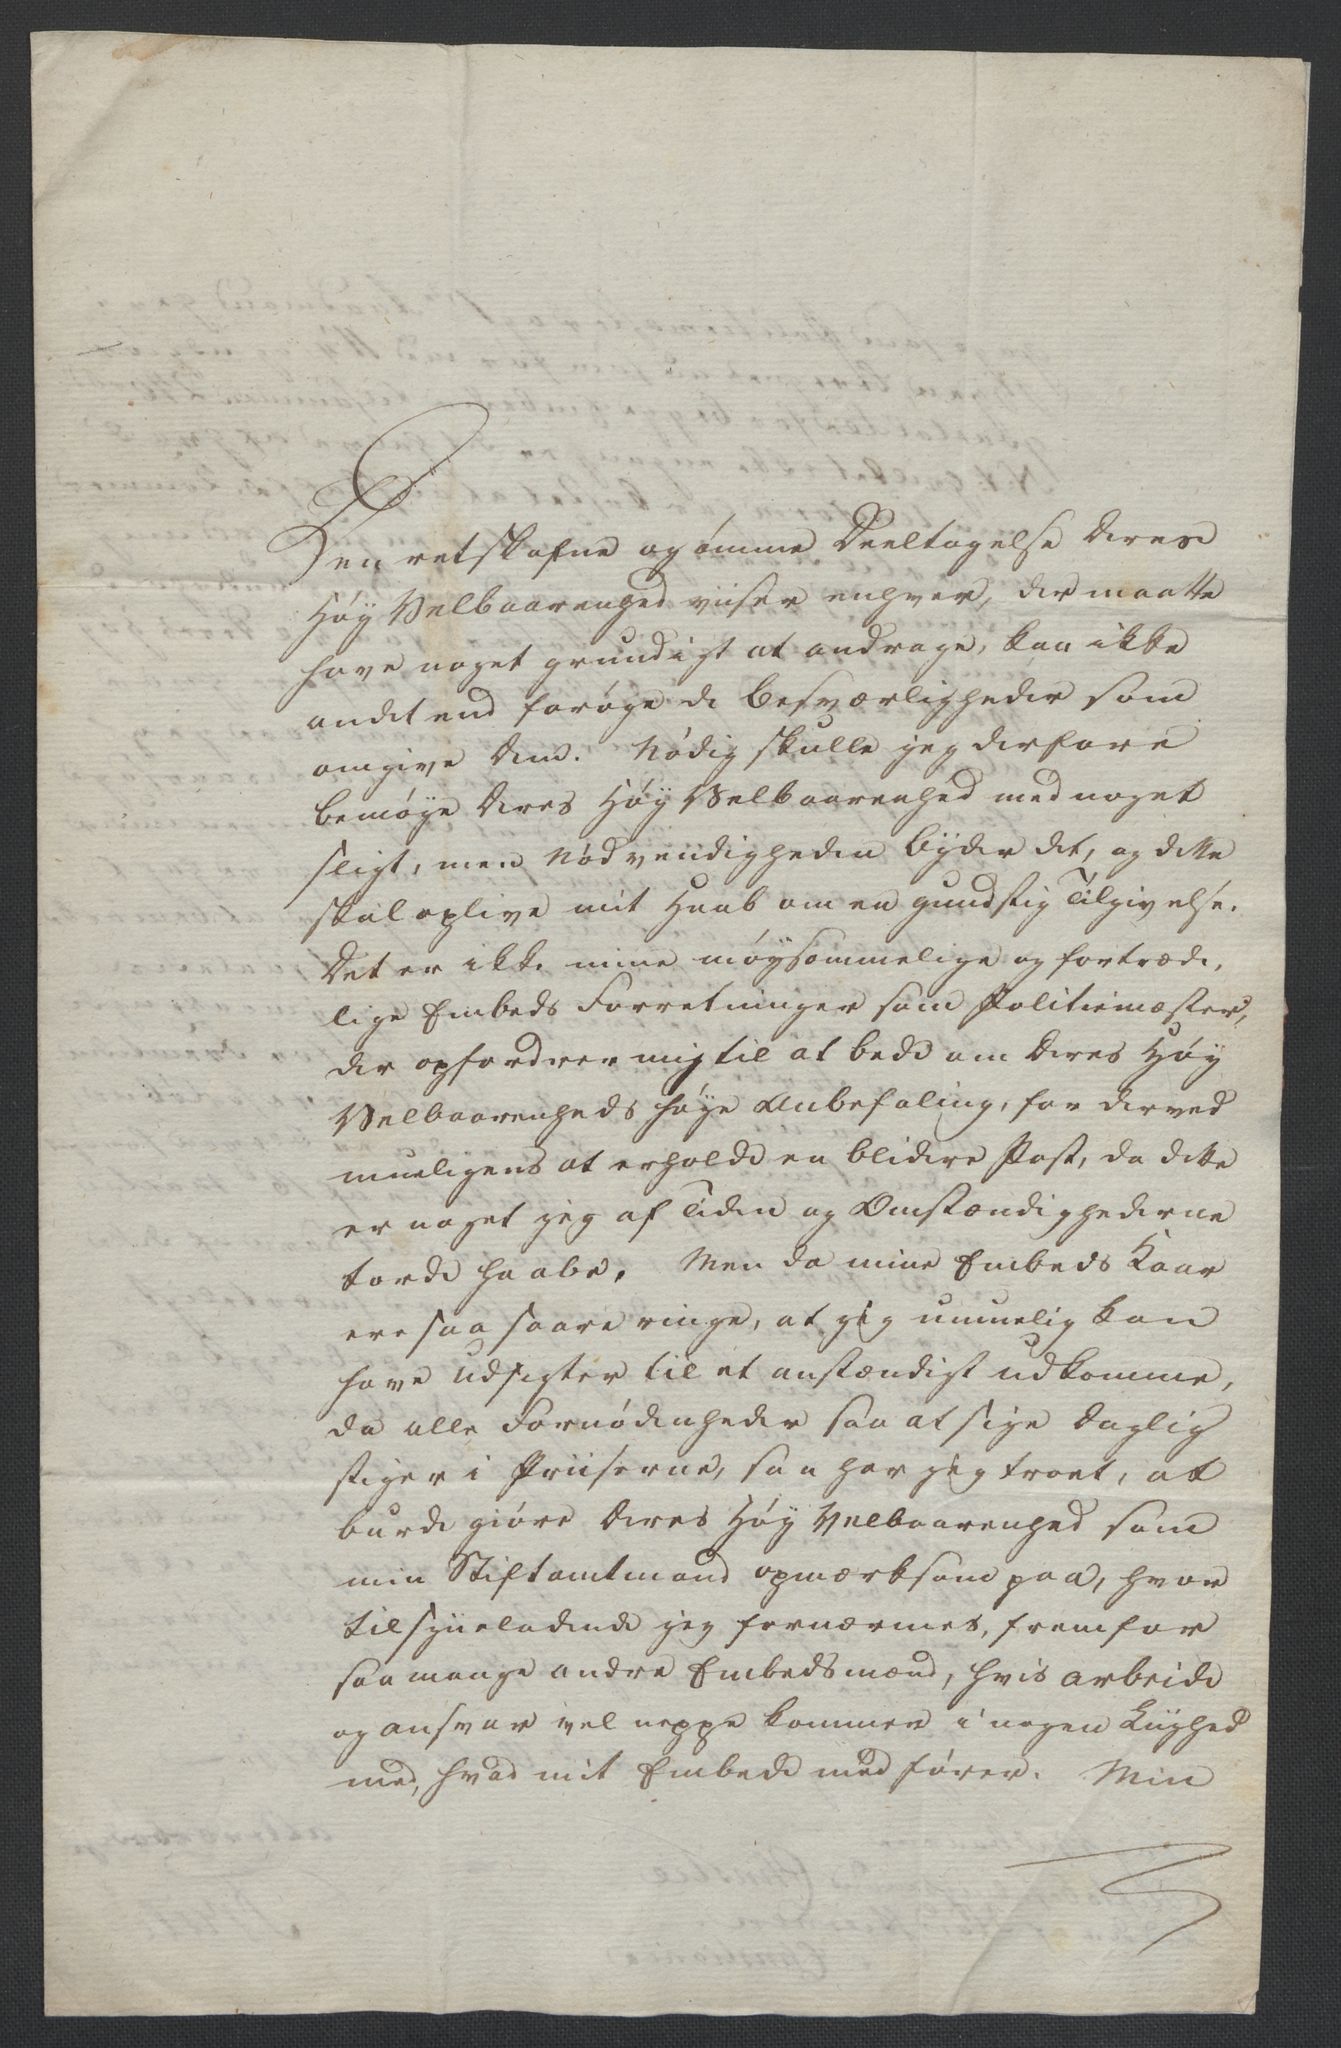 Den retskafne og ømme Deeltagelse Deres
Høy Velbaarenhed viiser enhver, der maatte
have noget grundigt at andrage, kan ikke
andet end forøge de Besværligheder som
omgive Dem. Nødig skulle jeg derfore
bemøye Deres Høy Velbaarenhed med noget
sligt, men Nødvendigheden byder det, og dette
skal oplive mit Haab om en gundstig Tilgivelse.
Det er ikke mine møysommelige og fortræde,
lige Embeds Forretninger som Politiemæster,
der opfordrer mig til at bede om Deres Høy
Velbaarenheds høye Anbefaling, for derved
mueligens at erholde en blidere Post, da dette
er noget jeg af Tiden og Omstændighederne
torde haabe. Men da mine Embeds Kaar
ere saa saare ringe, at jeg umuelig kan
have Udsigter til et anstændigt udkomme,
da alle Fornødenheder saa at sige daglig
stiger i Priiserne, saa har jeg troet, at
burde giøre Deres Høy Velbaarenhed som
min Stiftamtmand opmærksom paa, hvor
tilsyneladende jeg fornærmes, fremfor
saa mange andre Embedsmænd, hvis arbeide
og ansvar vel neppe kommer i nogen Liighed
med, hvad mit Embede medfører. Min